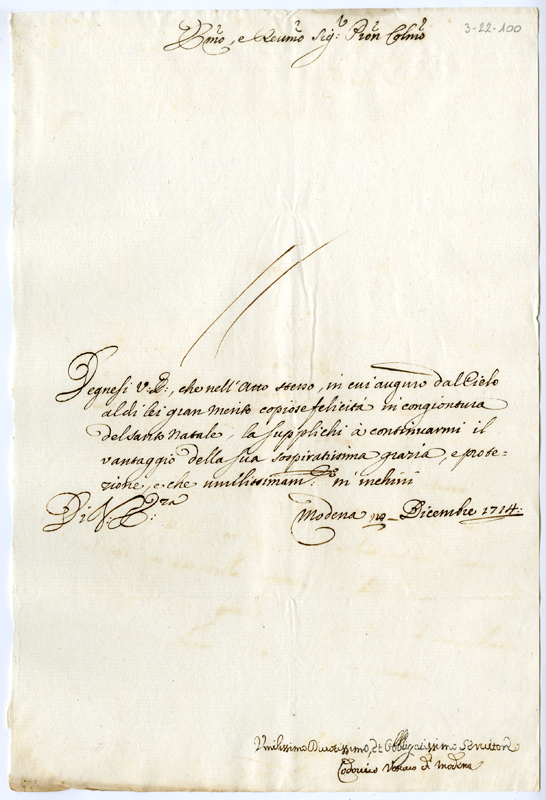 3-22-100
Emo, e Reumo Sig:r Pron Colmo
Degnesi V: E:, che nell'Atto stesso, in cui auguro dal Cielo
al di lei gran Merito copiose felicità in congiontura
del santo Natale, la supplichi à continuarmi il
vantaggio della sua sospiratissima grazia, e prote-
zione, e che umilissimam:te m'inchini
Di V. E:
Modena Dicembre 1714:
Umilissimo Diuotissimo, et Obbligatissimo Seruitore
Lodouico Vescouo di Modena